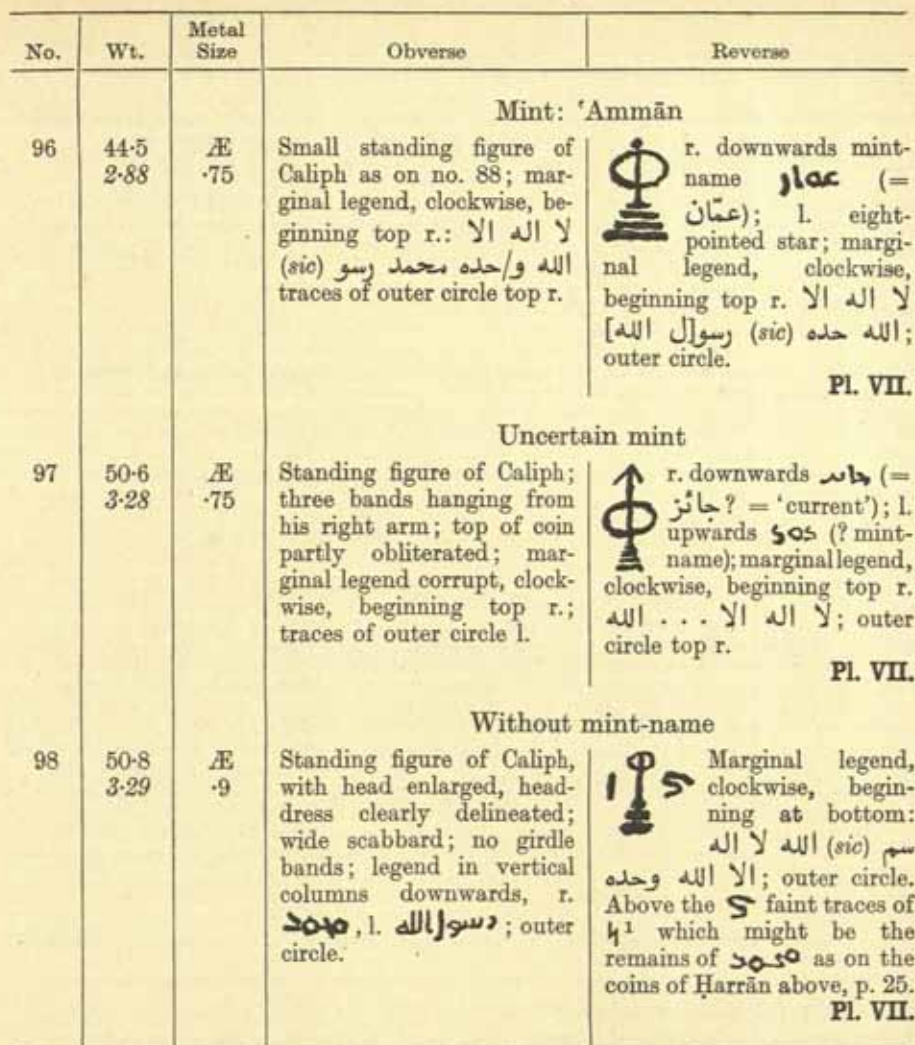 No.	Wt.	Metal Size	Obverse	Reverse
Mint: ʻAmmān
96
44·5
2·88
Æ
·75
Small standing figure of
Caliph as on no. 88; mar-
ginal legend, clockwise, be-
ginning top r.: لا اله الا
الله و/حده محمد رسو (sic)
traces of outer circle top r.
r. downwards mint-
name عمار (=
عمّان); l. eight-
pointed star; margi-
nal legend, clockwise,
beginning top r. لا اله الا
الله حده (sic) رسو[ل الله];
outer circle.
Pl. VII.
Uncertain mint
97
50·6
3·28
Æ
·75
Standing figure of Caliph;
three bands hanging from
his right arm; top of coin
partly obliterated; mar-
ginal legend corrupt, clock-
wise, beginning top r.;
traces of outer circle l.
r. downwards (=
جائز? = 'current'); l.
upwards (? mint-
name); marginal legend,
clockwise, beginning top r.
لا اله الا ... الله; outer
circle top r.
Pl. VII.
Without mint-name
98
50·8
3·29
Æ
·9
Standing figure of Caliph,
with head enlarged, head-
dress clearly delineated;
wide scabbard; no girdle
bands; legend in vertical
columns downwards, r.
, l. رسول الله; outer
circle.
Marginal legend,
clockwise, begin-
ning at bottom:
سم (sic) الله لا اله
الا الله وحده; outer circle.
Above the faint traces of
¹ which might be the
remains of as on the
coins of Ḥarrān above, p. 25.
Pl. VII.